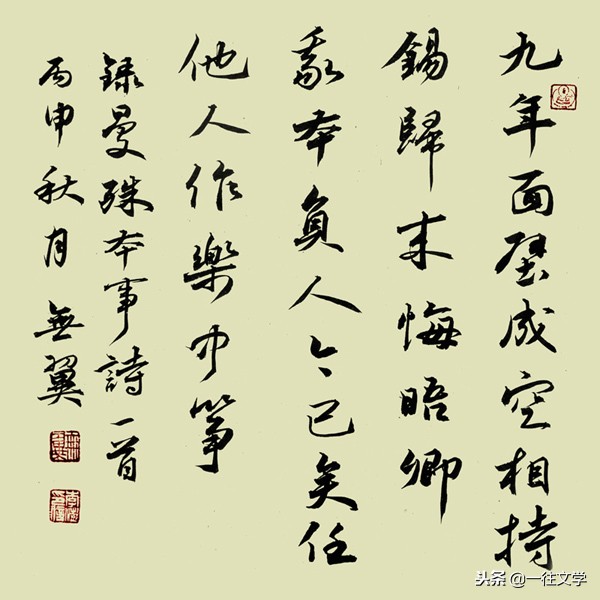 九年面壁成空相持
錫歸来悔晤卿
我本負人今已矣任
他人作樂中箏
錄曼殊本事詩一首
丙申秋月 無翼
头条 @一往文学